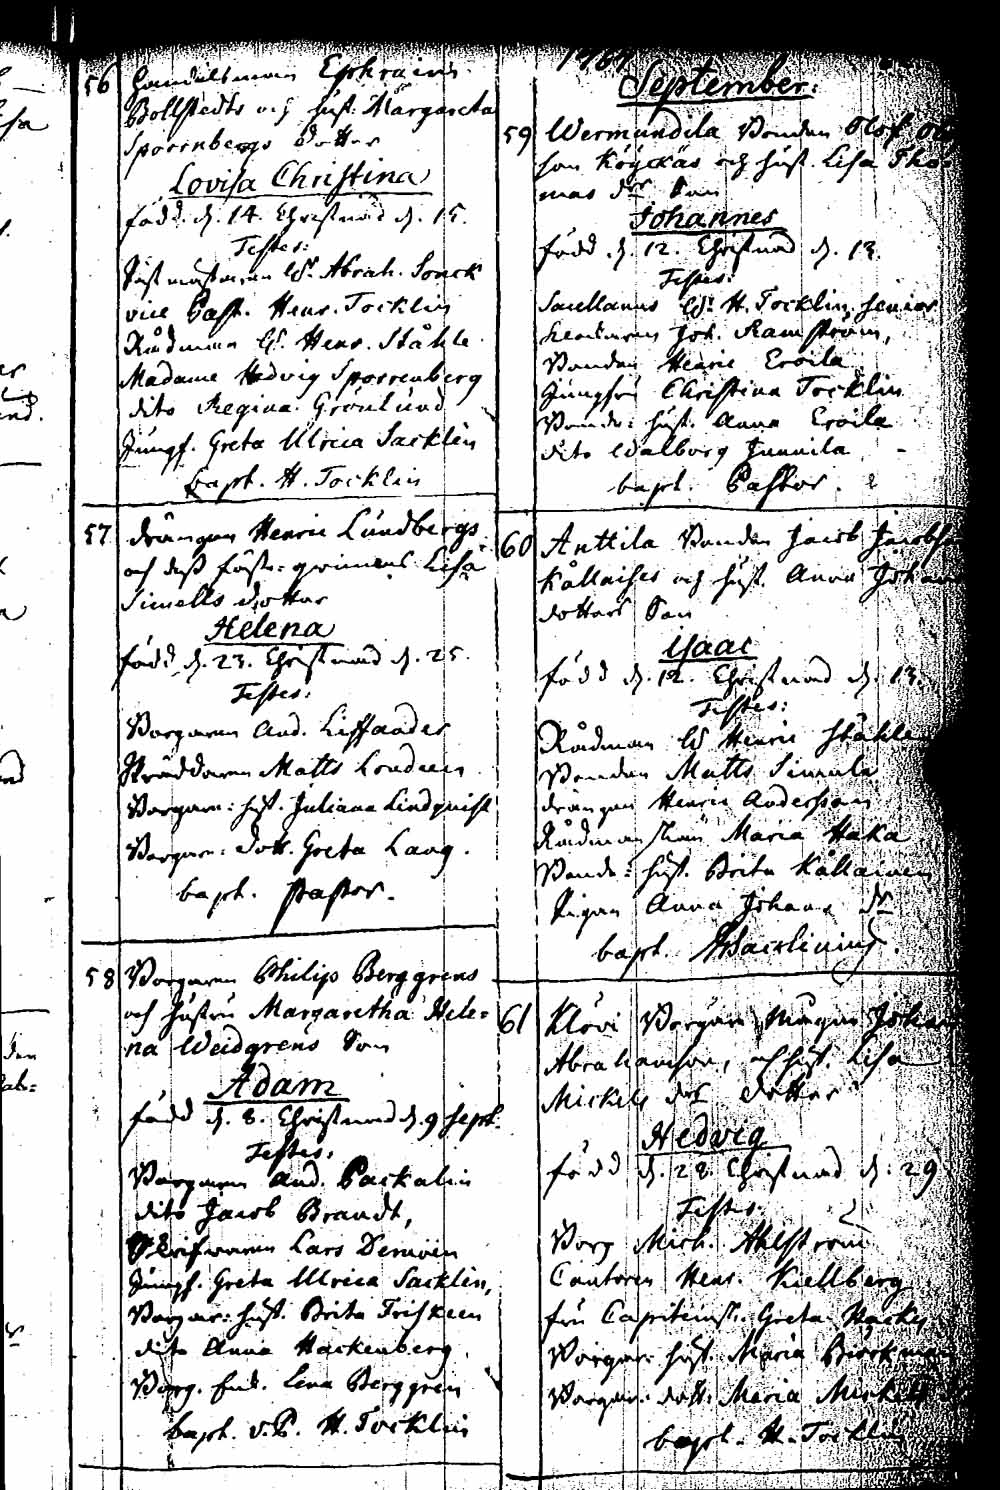 56 Handelsman Ephraim
Bollstedts och hust. Margareta
Sporrnbergs dotter
Lovisa Christina
född. d. 14. Christnad d. 15.
Testes:
Abrah. Sonck
vice Past. Henr. Tocklin
Rådman Hr. Henr. Ståhle
Madame Hedvig Sporrenberg
dito Regina Grönlund
Jungf. Greta Ulrica Sacklin
bapt. H. Tocklin
57 drängen Henric Lundbergs
och dess fäste-qvinnas Lisa
Simells dotter
Helena
född d. 23. Christnad d. 25.
Testes:
Borgaren And.
Skräddaren Matts
Borgare: hust. Juliana Lindquist
Borgar: dott. Greta Lang.
bapt. Pastor.
58 Borgaren Philip Berggrens
och hustru Margaretha Hele=
na Weidgrens Son
Adam
född d. 8. Christnad d. 9 Sept.
Testes:
Borgaren And. Packalin
dito Jacob Brandt,
Lars
Jungf. Greta Ulrica Sacklin,
Borgar: hust. Brita
dito Anna Hackenberg.
Borg. Lena Berggren
bapt. v.P. H. Tocklin
September:
59 Wermundila Bonden Olof
son och hust. Lisa Tho=
mas dr Son
Johannes
född d. 12. Christnad d. 13.
Testes:
Sacellanus Hr H. Tocklin, senior
Joh. Ramström,
Bonden Henric Eroila
Jungfru Christina Tocklin
Bonde: hust. Anna Eroila
dito Walborg Junnila
bapt. Pastor.
60 Anttila Bonden Jacob
och hust. Anna
dotters Son
Isaac
född d. 12. Christnad d. 13.
Testes:
Rådman Hr Henric Ståhle
Bonden Matts Simula
drängen Henric Andersson
Rådman Maria Haka
Bonde: hust. Brita
Pigan Anna Johans dr
bapt.
61 Klövi Johan
Abrahamson, och hust. Lisa
Mickels dr dotter
Hedvig
född d. 28. Christnad d. 29
Testes.
Borg Mich. Ahlström
Cantoren Henr. Kiellberg
fru Greta
Borgar: hust. Maria
Borgar: dott. Maria
bapt. H. Tocklin